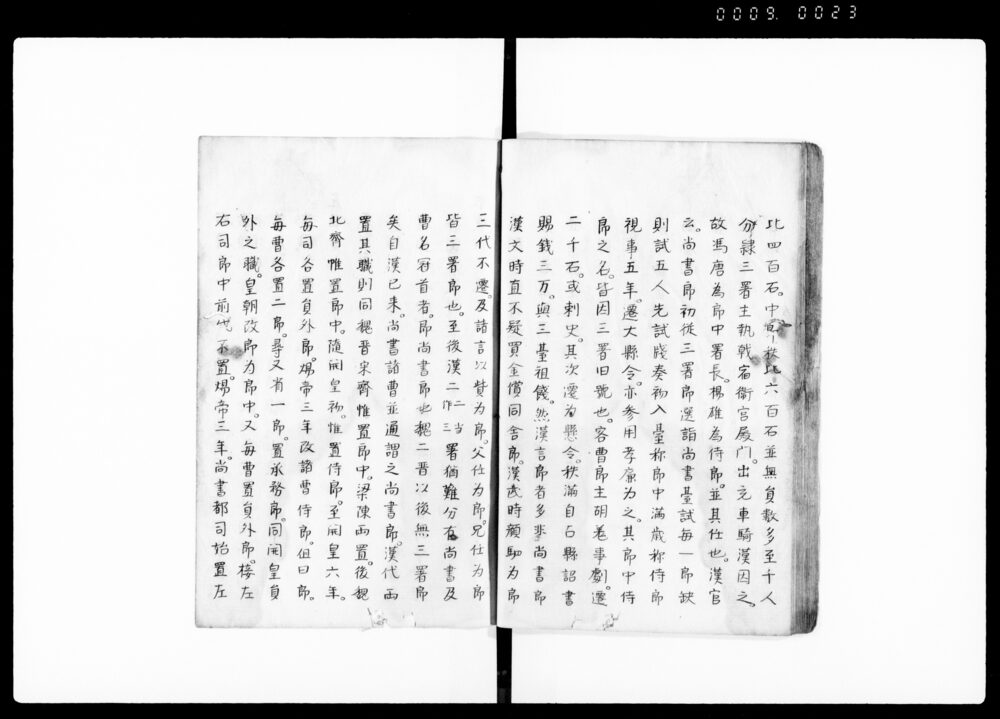 0009. 0023
比四百石。中郎秩比六百石並無員數多至千人
分隷三署主執戟宿衞宮殿門出充車騎漢因之。
故馮唐為郎中署長。楊雄為侍郎。並其仕也。漢官
云。尚書郎初從三署郎選詣尚書臺試每一郎缺
則試五人先試牋奏初入臺称郎中滿歲称侍郎
視事五年。遷大縣令。亦参用孝廉为之。其郎中侍
郎之名。皆因三署旧號也。客曹郎主胡羌事劇。遷
二千石。或刺史。其次遷為縣令。秩滿自占縣詔書
賜錢三万。與三臺祖餞。然漢言郎者多非尚書郎
漢文時直不疑買金償同舍郎。漢武時顏駟为郎
三代不遷。及諸言以貲为郎。父仕为郎。兄仕为郎
皆三署郎也。至後漢二二当作三署猶難分有尚書及
曹名冠首者。即尚書郎也魏二晋以後無三署郎
矣自漢已来。尚書諸曹並通謂之尚書郎。漢代两
置其職則同魏晋宋齊惟置郎中。梁陳两置。後魏
北齊惟置郎中。隨開皇初。惟置侍郎。至開皇六年。
每司各置員外郎。煬帝三年改諸曹侍郎。但曰郎。
每曹各置二郎。尋又省一郎。置承務郎。同開皇員
外之職。皇朝改郎为郎中。又每曹置員外郎。檢左
右司郎中前代不置。煬帝三年。尚書都司始置左